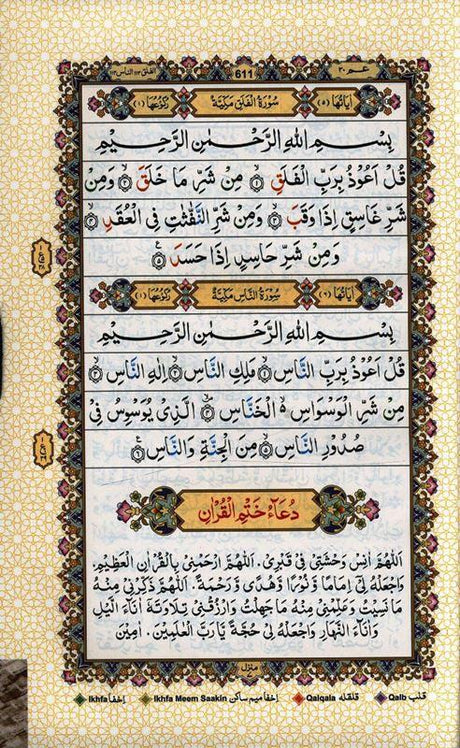 عم ٣٠ 611 الفلق ١١٣ الناس ١١٤
اٰيَاتُهَا (٥) سُوْرَةُ الْفَلَقِ مَكِّيَّةٌ رُكُوْعُهَا (١)
بِسْمِ اللّٰهِ الرَّحْمٰنِ الرَّحِيْمِ
قُلْ اَعُوْذُ بِرَبِّ الْفَلَقِ ۙ﴿١﴾ مِنْ شَرِّ مَا خَلَقَ ۙ﴿٢﴾ وَمِنْ
شَرِّ غَاسِقٍ اِذَا وَقَبَ ۙ﴿٣﴾ وَمِنْ شَرِّ النَّفّٰثٰتِ فِى الْعُقَدِ ۙ﴿٤﴾
وَمِنْ شَرِّ حَاسِدٍ اِذَا حَسَدَ ﴿٥﴾
اٰيَاتُهَا (٦) سُوْرَةُ النَّاسِ مَكِّيَّةٌ رُكُوْعُهَا (١)
بِسْمِ اللّٰهِ الرَّحْمٰنِ الرَّحِيْمِ
قُلْ اَعُوْذُ بِرَبِّ النَّاسِ ۙ﴿١﴾ مَلِكِ النَّاسِ ۙ﴿٢﴾ اِلٰهِ النَّاسِ ۙ﴿٣﴾
مِنْ شَرِّ الْوَسْوَاسِ ۙ الْخَنَّاسِ ۙ﴿٤﴾ الَّذِىْ يُوَسْوِسُ فِىْ
صُدُوْرِ النَّاسِ ۙ﴿٥﴾ مِنَ الْجِنَّةِ وَالنَّاسِ ﴿٦﴾
دُعَآءُ خَتْمِ الْقُرْاٰنِ
اَللّٰهُمَّ اٰنِسْ وَحْشَتِىْ فِىْ قَبْرِىْ. اَللّٰهُمَّ ارْحَمْنِىْ بِالْقُرْاٰنِ الْعَظِيْمِ.
وَاجْعَلْهُ لِىْ اِمَامًا وَّ نُوْرًا وَّ هُدًى وَّ رَحْمَةً. اَللّٰهُمَّ ذَكِّرْنِىْ مِنْهُ
مَا نَسِيْتُ وَعَلِّمْنِىْ مِنْهُ مَا جَهِلْتُ وَارْزُقْنِىْ تِلَاوَتَهٗ اٰنَآءَ الَّيْلِ
وَاٰنَآءَ النَّهَارِ وَاجْعَلْهُ لِىْ حُجَّةً يَّا رَبَّ الْعٰلَمِيْنَ. اٰمِيْنَ
منزل ٧
Ikhfa إخفا Ikhfa Meem Saakin إخفا ميم ساكن Qalqala قلقله Qalb قلب